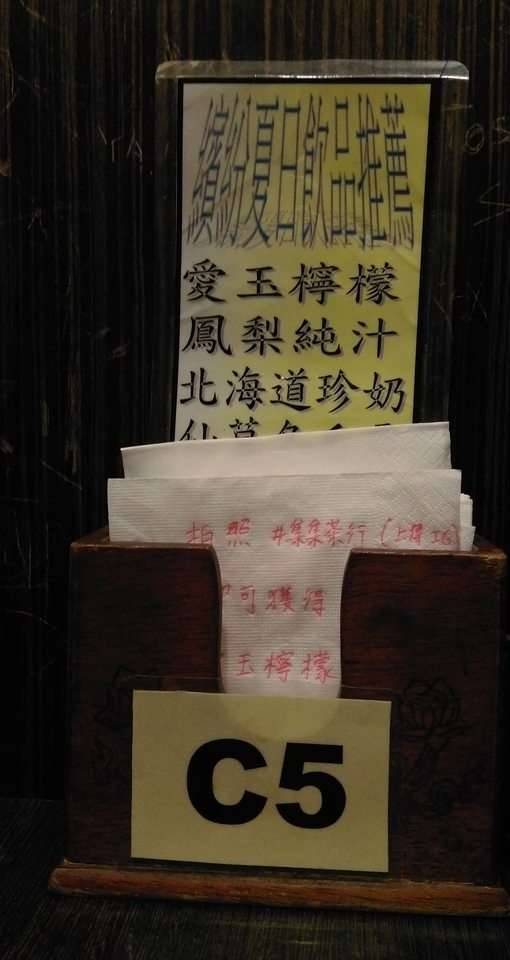 繽紛夏日飲品推薦
愛玉檸檬
鳳梨純汁
北海道珍奶
拍照 #集集茶行 (上標
可獲得
玉檸檬
C5